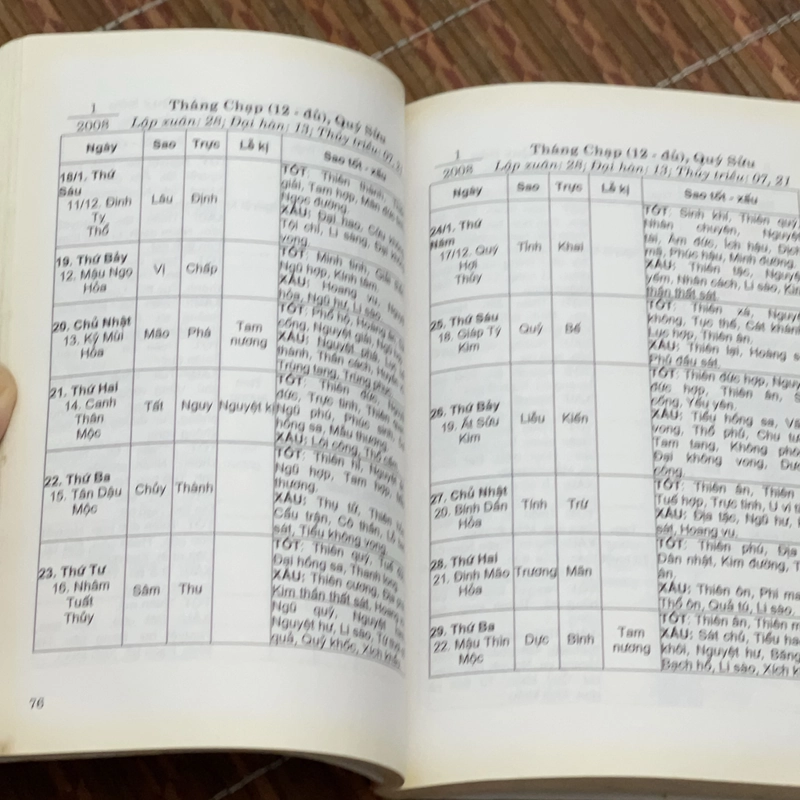 1
2008
Tháng Chạp (12 - đủ), Quý Sửu
Lập xuân: 28; Đại hàn: 13; Thủy triều: 07, 21
Ngày Sao Trực Lỗ kị Sao tốt - xấu
18/1. Thứ Sáu
11/12. Đinh
Tỵ
Thổ
Lâu Định
TỐT: Thiên thành,
giải, Tam hợp, Mẫn đức
Ngọc đường.
XẤU: Đại hao,
Tội chỉ, Li sàng,
vong.
19. Thứ Bảy
12. Mậu Ngọ
Hỏa
Vị Chấp
TỐT: Minh tinh, Giải
Ngũ hợp, Kính tâm.
XẤU: Hoang vu, Nguyệt
hỏa, Ngũ hư, Li sào.
20. Chủ Nhật
13. Kỷ Mùi
Hỏa
Mão Phá Tam
nương
TỐT: Phổ hộ, Hoàng ân,
công, Nguyệt giải,
XẤU: Nguyệt phá,
thành, Thần cách, Huyền
Trùng tang, Trùng phục.
21. Thứ Hai
14. Canh
Thân
Mộc
Tất Nguy Nguyệt kị
TỐT: Thiên đức,
đức, Trực tinh, Thiên
Ngũ phú, Phúc sinh,
hồng sa, Mẫu thương.
XẤU: Lôi công, Thổ cẩm.
22. Thứ Ba
15. Tân Dậu
Mộc
Chủy Thành
TỐT: Thiên hỉ, Nguyệt
Ngũ hợp, Tam hợp,
thương.
XẤU: Thụ tử, Thiên
Cầu trận, Cô thần, Lỗ
sát, Tiểu không vong.
23. Thứ Tư
16. Nhâm
Tuất
Thủy
Sâm Thu
TỐT: Thiên quý,
Đại hồng sa, Thanh long.
XẤU: Thiên cương, Địa
Kim thần thất sát, Hoang
Ngũ quỷ, Nguyệt
Nguyệt hư, Li sào, Tứ thời
quả, Quỷ khốc, Xích khẩu
76
1
2008
Tháng Chạp (12 - đủ), Quý Sửu
Lập xuân: 28; Đại hàn: 13; Thủy triều: 07, 21
Ngày Sao Trực Lỗ kị Sao tốt - xấu
24/1. Thứ
Năm
17/12. Quý
Hợi
Thủy
Tỉnh Khai
TỐT: Sinh khí, Thiên quý,
Nhân chuyên, Nguyệt
tài, Âm đức, Ích hậu, Dịch
mã, Phúc hậu, Minh đường.
XẤU: Thiên tặc, Nguyệt
yếm, Nhân cách, Li sào, Kim
thần thất sát.
25. Thứ Sáu
18. Giáp Tý
Kim
Quỷ Bế
TỐT: Thiên xá, Nguyệt
không, Tục thế, Cát khánh,
Lục hợp, Thiên ân.
XẤU: Thiên lại, Hoàng sa,
Phủ đầu sát.
26. Thứ Bảy
19. Ất Sửu
Kim
Liễu Kiến
TỐT: Thiên đức hợp, Nguyệt
đức hợp, Thiên ân,
công, Yếu yên.
XẤU: Tiểu hồng sa,
vong, Thổ phủ, Chu tước,
Tam tang, Không phòng,
Đại không vong, Dương
công.
27. Chủ Nhật
20. Bính Dần
Hỏa
Tinh Trừ
TỐT: Thiên ân, Thiên
Tuế hợp, Trực tinh, U vi tinh
XẤU: Địa tặc, Ngũ hư,
sát, Hoang vu.
28. Thứ Hai
21. Đinh Mão
Hỏa
Trương Mãn
TỐT: Thiên phú, Địa
Dân nhật, Kim đường,
ân.
XẤU: Thiên ôn, Phi ma
Thổ ôn, Quả tú, Li sào.
29. Thứ Ba
22. Mậu Thìn
Mộc
Dực Bình Tam
nương
TỐT: Thiên ân, Thiên
XẤU: Sát chủ, Tiểu hao,
khôi, Nguyệt hư, Băng
Bạch hổ, Li sào, Xích